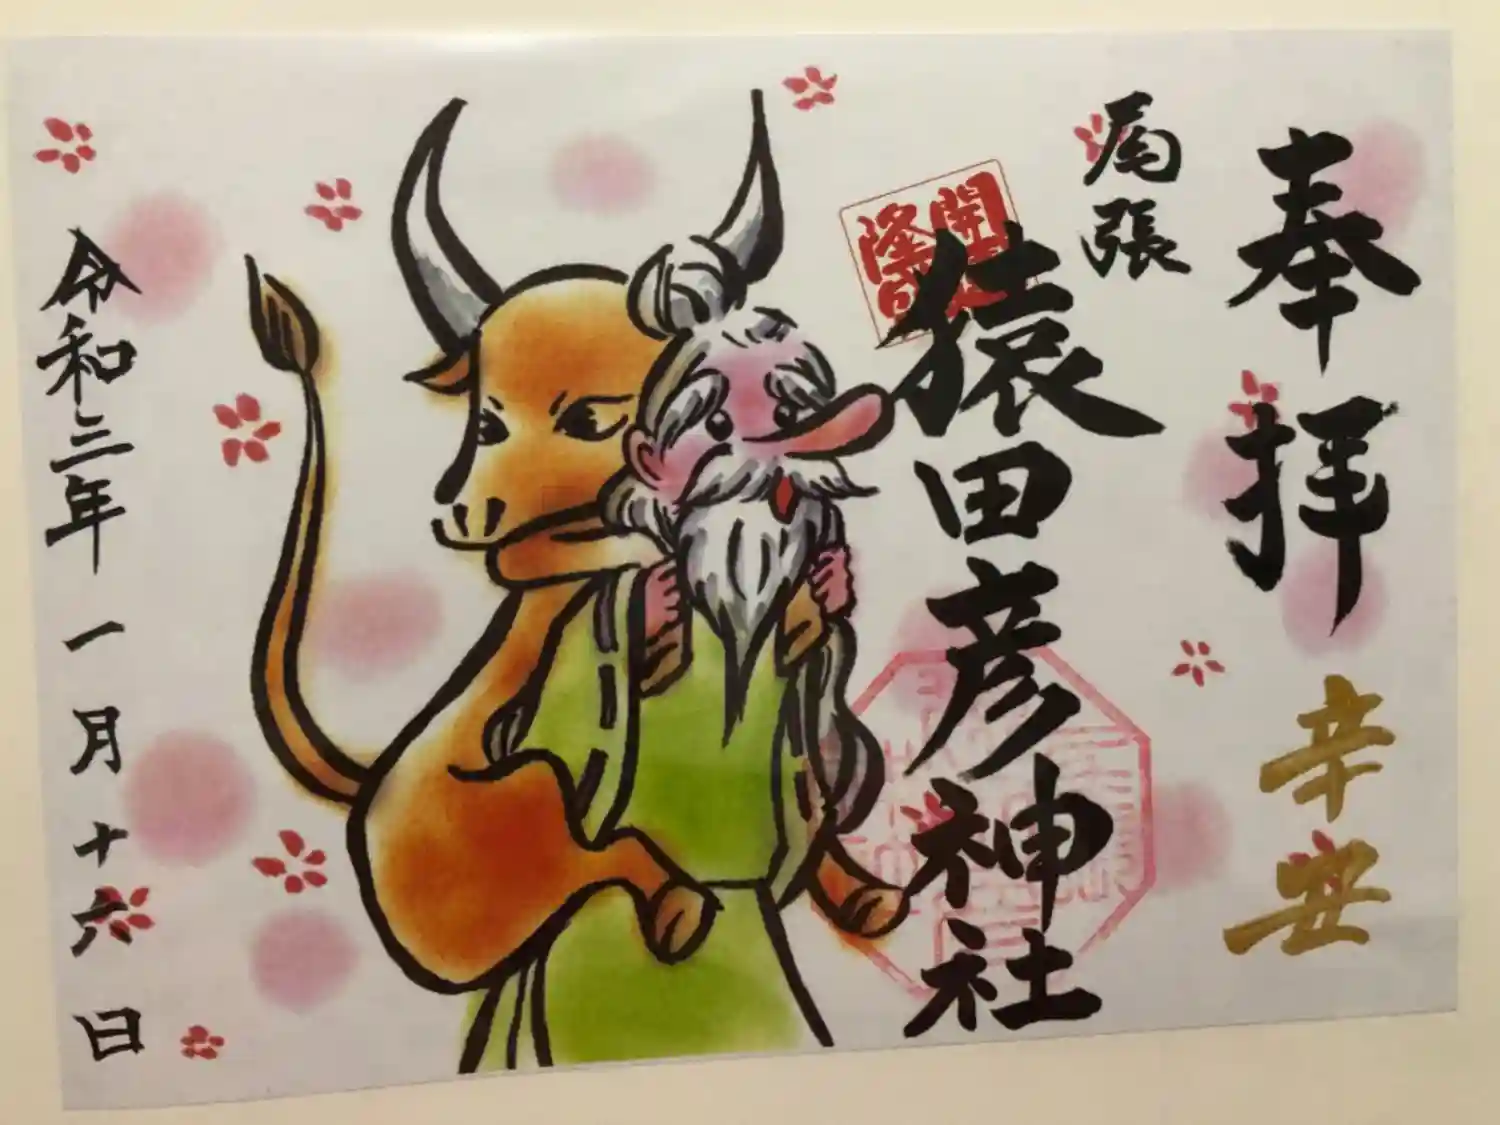 奉拝
辛安
尾張
猿田彦神社
開運
隆昌
令和三年一月十六日